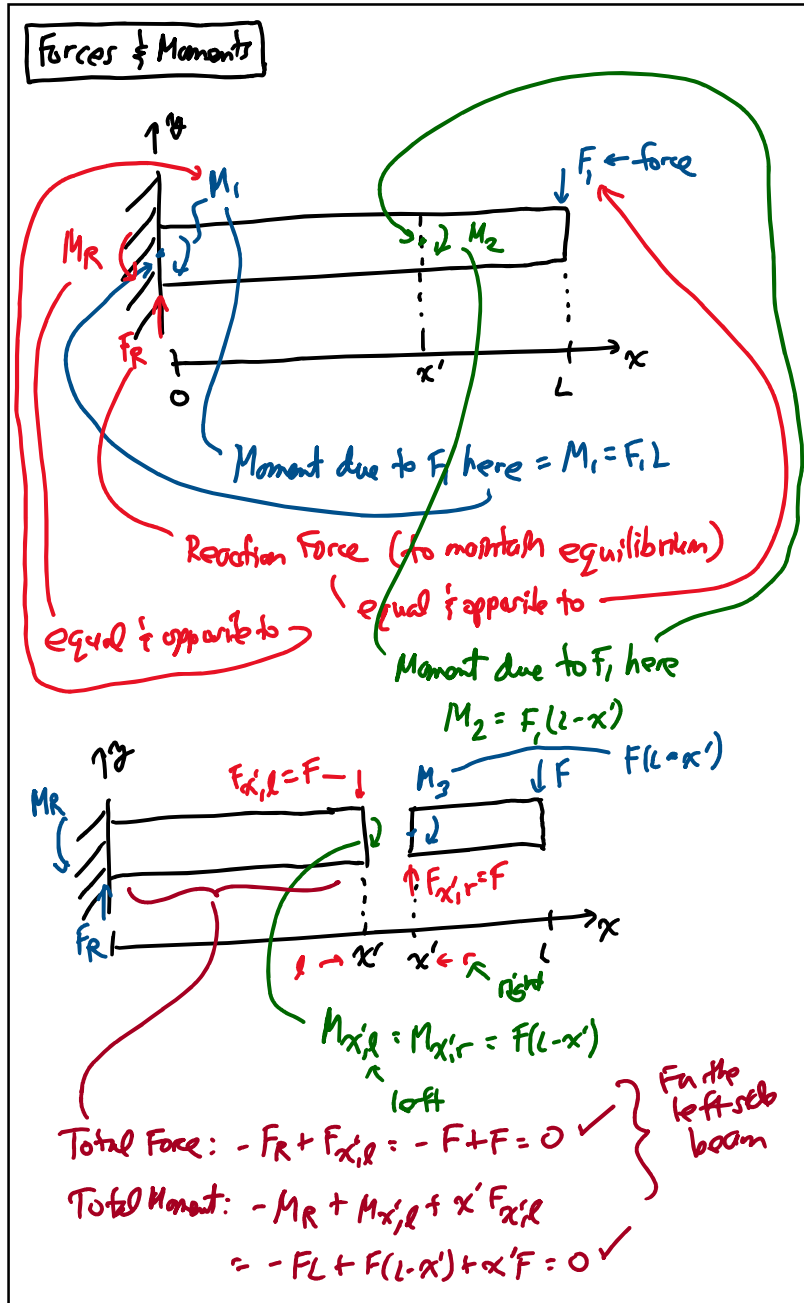 Forces & Moments
y
M₁
F₁ ← force
M_R
M₂
F_R
x
0
x'
L
Moment due to F₁ here = M₁ = F₁L
Reaction Force (to maintain equilibrium)
equal & opposite to
equal & opposite to
Moment due to F₁ here
M₂ = F₁(L-x')
y
F_{x',l} = F
M₃
F
F(L-x')
M_R
F_{x',r} = F
F_R
x
l → x'
x' ← r
L
right
M_{x',l} = M_{x',r} = F(L-x')
left
For the
left side
beam
Total Force: - F_R + F_{x',l} = - F + F = 0 ✓
Total Moment: - M_R + M_{x',l} + x' F_{x',l}
= - FL + F(L-x') + x'F = 0 ✓